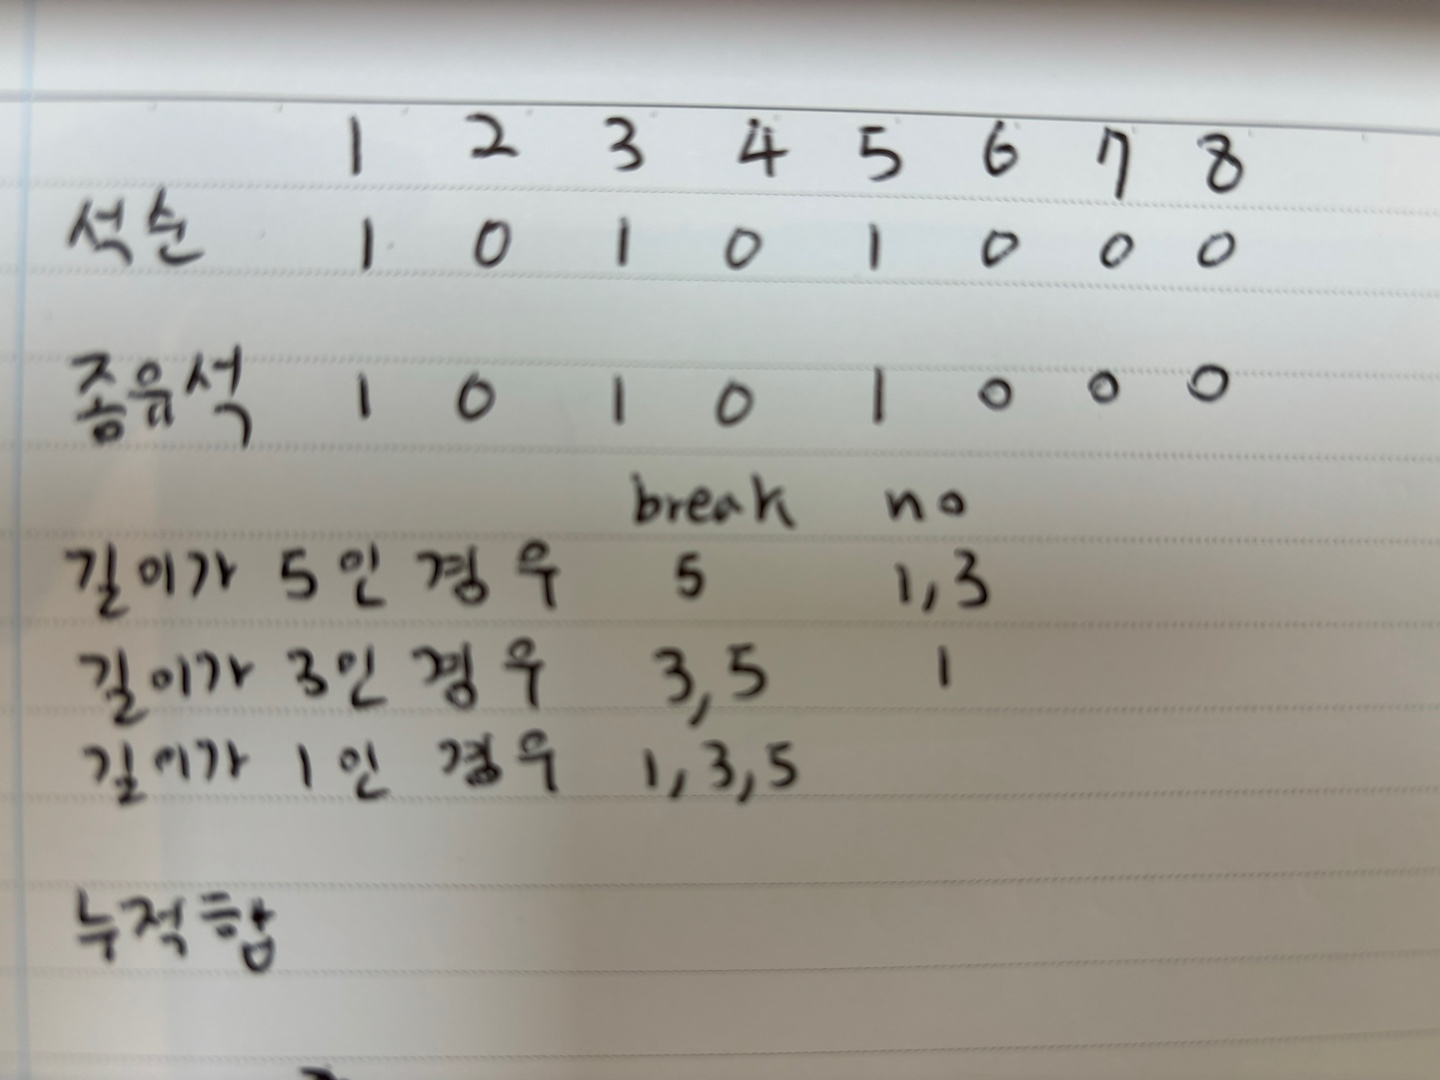 1 2 3 4 5 6 7 8
석순 1 0 1 0 1 0 0 0
종유석 1 0 1 0 1 0 0 0
break no
길이가 5인 경우 5 1,3
길이가 3인 경우 3,5 1
길이가 1인 경우 1,3,5
누적합